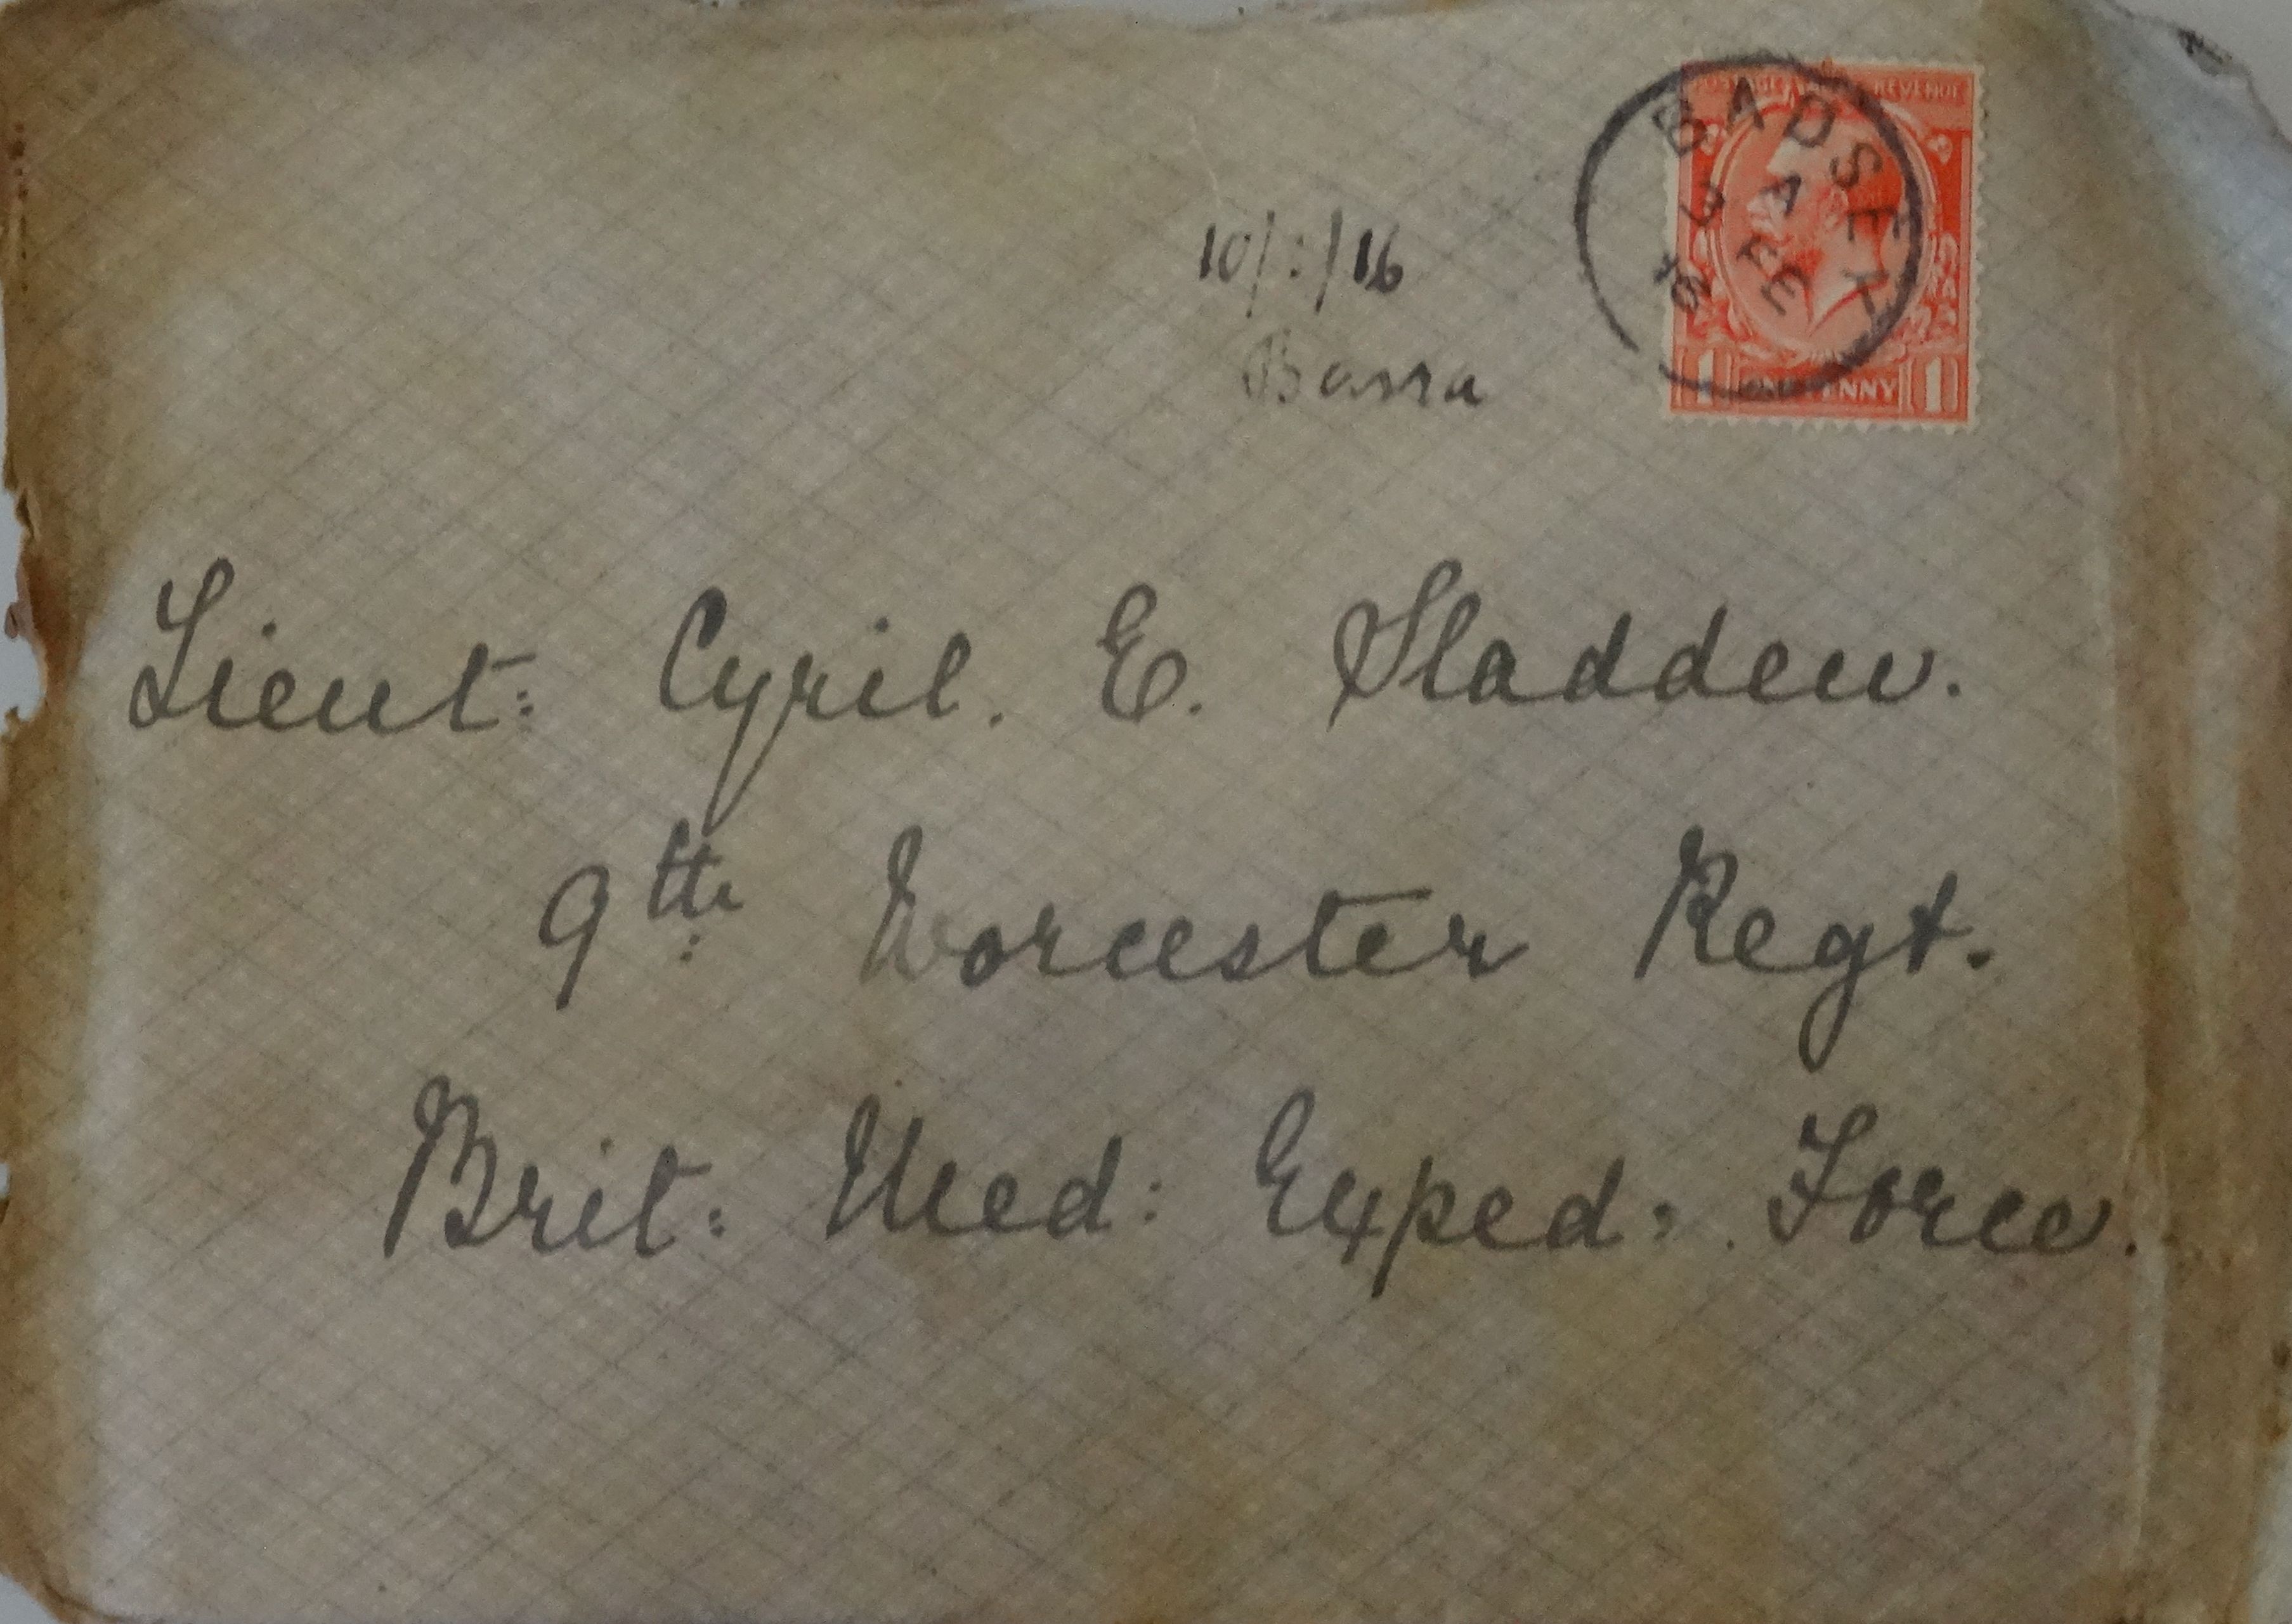 BADSEY
A
3 FE
16
POSTAGE REVENUE
1 ONE PENNY 1
10/ /16
Basra
Lieut: Cyril. E. Sladden.
9th: Worcester Regt.
Brit: Med: Exped: Force.